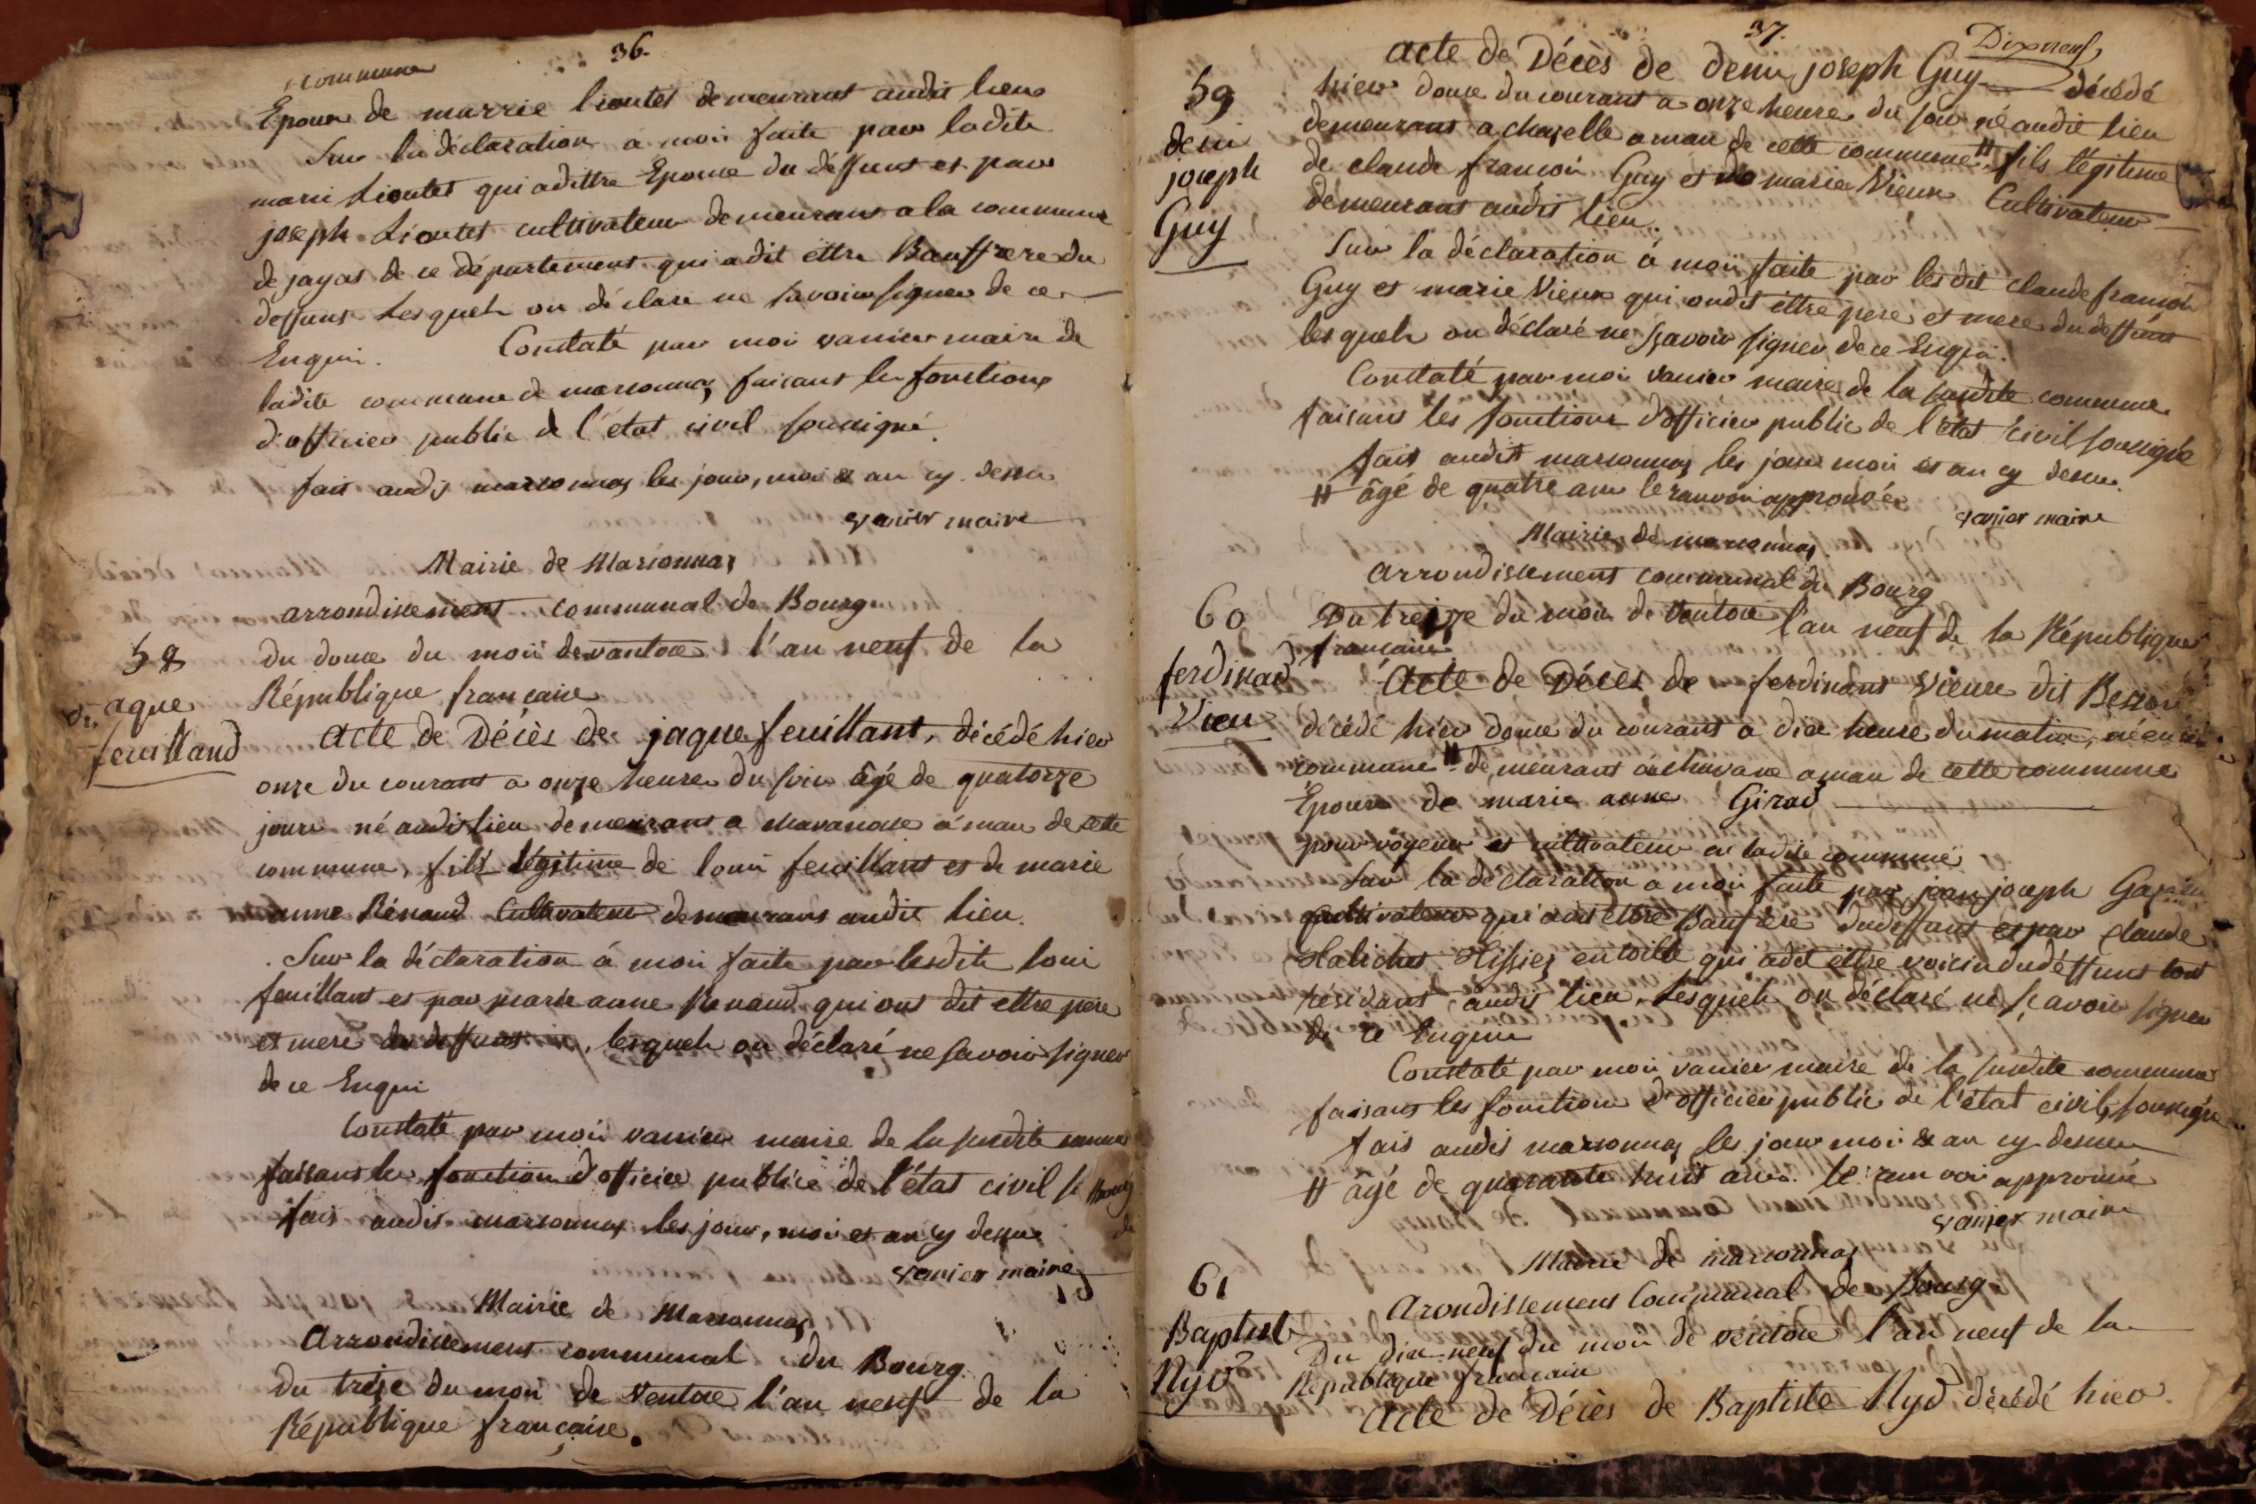 36.
commune
Epoux de marrie lioutet demeurant audit lieu
Sur la déclaration a moi faite par ladite
marie Lioutet qui a dit ettre Epouse du déffunt et par
joseph Lioutet cultivateur demeurant a la commune
de jayat de ce département qui a dit ettre Bauffrere du
deffunt Lesquels on déclare ne savoir signer de ce
Enquis. Constaté par moi vanier maire de
ladite commune de marsonnas faisant les fonctions
d'officier public de l'état civil soussigné.
fait audit marsonnas les jour, mois & an cy dessu
vanier maire
Mairie de Marsonnas
arrondissement communal de Bourg
58
jaque
feuilland
du douce du mois de vantose l'an neuf de la
République française
acte de Décès de jaque feuillant, décédé hier
onze du courant a onze heure du soir âgé de quatorze
jours né audit lieu demeurant a chavanosse amau de cette
commune, fils légitime de loui feuillant et de marie
anne Rénaud Cultivateur demeurant audit lieu.
Sur la déclaration á moi faite par lesdits loui
feuillant et par marie anne Renaud qui ont dit ettre pere
et mere du deffunt, lesquels on déclaré ne savoir signer
de ce Enqui
Constaté par moi vanier maire de la susdite commune
faisant les fonction d'officier publice de l'état civil
fait audit marsonnas les jour, moi et an cy dessu
vanier maire
Mairie de Marsonnas
Arrondissement communal du Bourg
du treize du moi de Ventose l'an neuf de la
République française.
37.
Dixneuf
acte de Décès de deni joseph Guy décédé
59
deni
joseph
Guy
hier douce du courant a onze heure du soir né audit lieu
demeurant a chazelle amau de cette commune # fils légitime
de claude françoi Guy et de marie Vieux Cultivateur
démeurant audit lieu.
Sur la déclaration á moi faite par lesdit claude françoi
Guy et marie Vieux qui ondit ettre pere et mere du deffunt
lesquels on déclaré ne sçavoir signer de ce Enqui.
Constaté par moi vanier maire de la susdite commune
faisant les fonctions d'officier public de l'état civil soussigné
fait audit marsonnas les jour moi et an cy dessu.
# âgé de quatre ans le ranvoi approuvé
vanier maire
Mairie de marsonnas
arrondissement communal du Bourg
60
ferdinad
Vieu
Du treize du mois de Ventose l'an neuf de la République
française
Acte de Décès de ferdinant Vieux dit Besson
décédé hier douce du courant a dix heure du matin, né en
commune # demeurant a chavane amau de cette commune
Epoux de marie anne Girad
pourvöyeur et cultivateur en ladite commune
Sur la declaration a moi faite par jean joseph
cultivateur qui a dit ettre Baufrere du deffunt et par claude
Halichet Tissier en toille qui a dit ettre voicin du déffunt tout
résidant audit lieu. Lesquels on déclaré ne sçavoir signer
de ce Enquis
Constaté par moi vanier maire de la susdite commune
faisant les fonctions d'officier public de l'état civil soussigné
fait audit marsonnas les jour moi & an cy dessu
# âgé de quarante huit ans. le ranvoi approuvé
vanier maire
Mairie de marsonnas
Arondissement Communal de Bourg
61
Baptiste
Nyd
Du dix neuf du moi de ventose l'an neuf de la
République française
Acte de Décès de Baptiste Nyd décédé hier